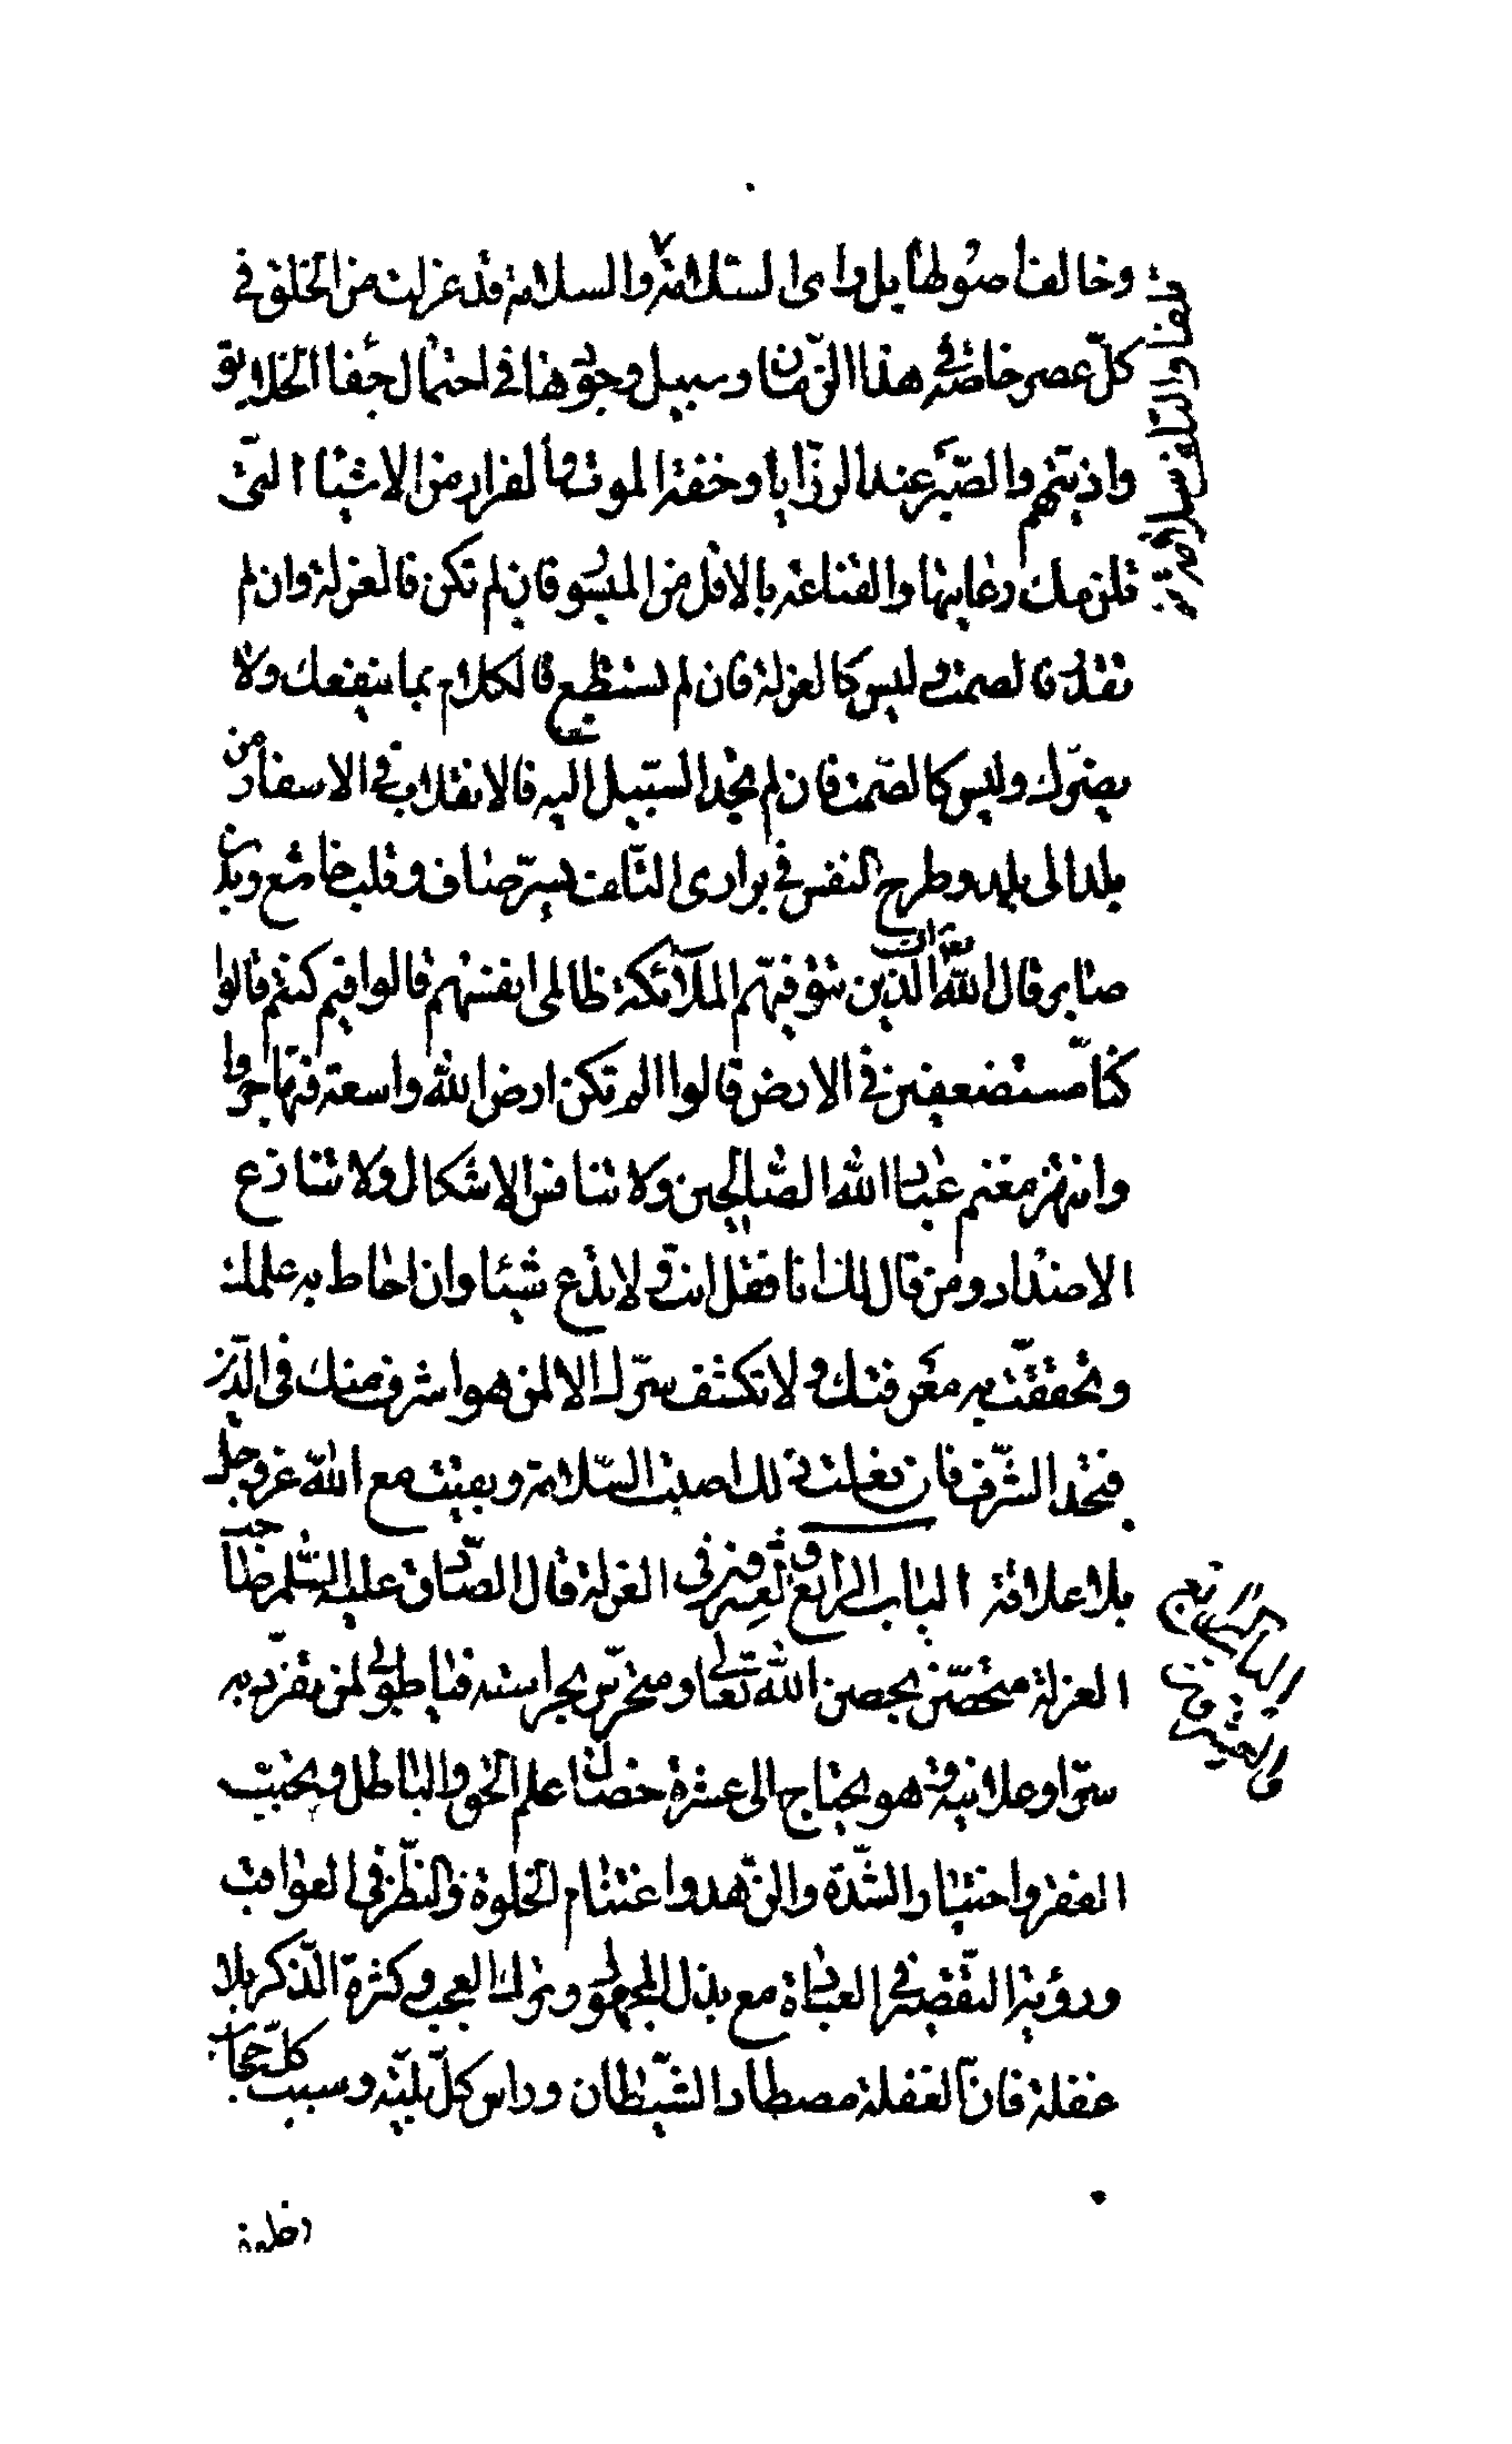 وخالف اصولها بل رای السلامة والسلامة قد عزلت من الخلق فی
كلّ عصر خاصّة فی هذا الزّمان وسبیل وجودها فی احتمال جفا الخلایق
واذیتهم والصّبر عند الرزایا وخفة الموت والفرار من الاشیاا الّتی
تلزمك رعایتها والقناعة بالاقل من المیسور فان لم تكن فالعزلة وان لم
تقدر فالصمت ولیس كالعزلة فان لم تستطع فالكلام بما ینفعك ولا
یضرّك ولیس كالصّمت فان لم تجد السّبیل الیه فالانقلاب فی الاسفار من
بلد الی بلد وطرح النفس فی براری التّلف بسرّ صاف وقلب خاشع وبدن
صابر قال اللّه انّ الّذین تتوفیهم الملآئكة ظالمی انفسهم قالوا فیم كنتم قالوا
كنّا مستضعفین فی الارض قالوا الم تكن ارض اللّه واسعة فتهاجروا
وانتهز مغنم عباد اللّه الصّالحین ولا تنافس الاشكال ولا تنازع
الاضداد ومن قال لك انا فقل انت ولا تدّع شیئا وان احاط به علمك
وتحقّقت به معرفتك ولا تكشف سرّك الا لمن هو اشرف منك فی الدّین
فتجد الشّرف فان فعلت ذلك اصبت السّلامة وبقیت مع اللّه عزّ وجلّ
بلا علاقة الباب الرابع والعشرون فی العزلة قال الصّادق علیه السّلم صاحب
العزلة متحصّن بحصن اللّه تعالی ومتحرّس بحراسته فیا طوبی لمن تفرّد به
سرّا وعلانیة وهو یحتاج الی عشرة خصال علم الحق والباطل وتحبّب
الفقر واختیار الشّدّة والزّهد واغتنام الخلوة والنّظر فی العواقب
ورؤیة التّقصیر فی العبادة مع بذل المجهود وترك العجب وكثرة الذّكر بلا
غفلة فانّ الغفلة مصطاد الشّیطان وراس كلّ بلیّة وسبب كلّ حجاب
الباب الرابع
والعشرون